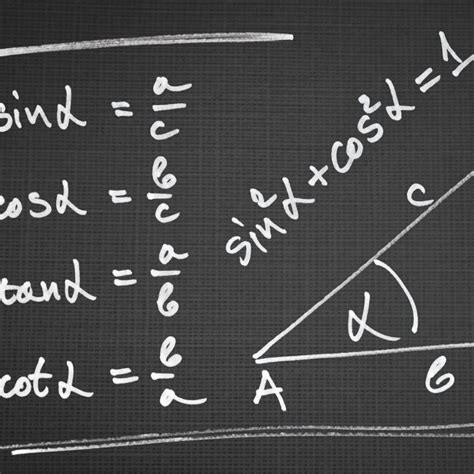 sinα = a/c
cosα = b/c
tanα = a/b
cotα = b/a
sin²α + cos²α = 1
c
α
A
b